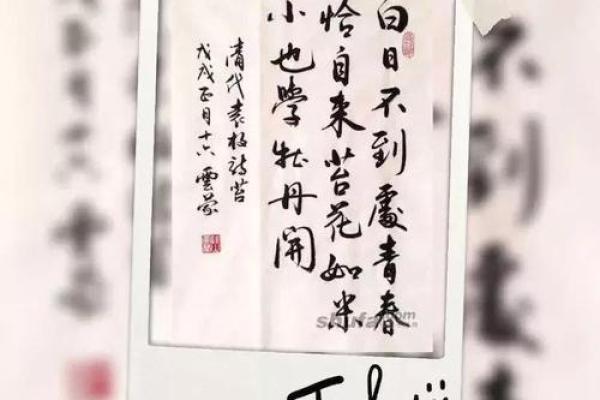 白日不到處青春
恰自来苔花如米
小也學牡丹開
清代袁枚詩苔
戊戌正月十六 雲蒙